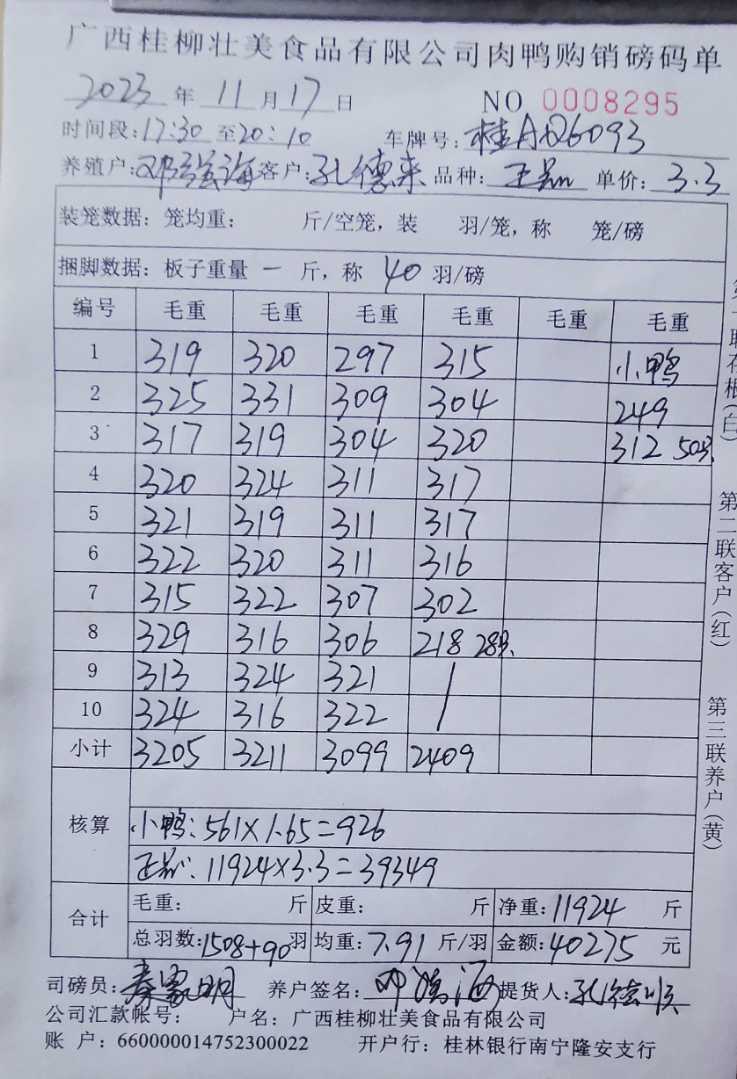 广西桂柳壮美食品有限公司肉鸭购销磅码单
2023 年 11 月 17 日 NO 0008295
时间段:17:30 至20:10 车牌号:桂AQ6093
养殖户:邓强海 客户:孔德来 品种: 单价: 3.3
装笼数据: 笼均重: 斤/空笼, 装 羽/笼, 称 笼/磅
捆脚数据: 板子重量 一 斤, 称 40 羽/磅
编号 毛重 毛重 毛重 毛重 毛重 毛重
1 319 320 297 315 小鸭
2 325 331 309 304 249
3 317 319 304 320 312 50只
4 320 324 311 317
5 321 319 311 317
6 322 320 311 316
7 315 322 307 302
8 329 316 306 218 28只
9 313 324 321 /
10 324 316 322 /
小计 3205 3211 3099 2409
核算
小鸭: 561×1.65=926
正品: 11924×3.3=39349
合计
毛重: 斤 皮重: 斤 净重: 11924 斤
总羽数: 1508+90 羽 均重: 7.91 斤/羽 金额: 40275 元
司磅员: 养户签名: 邓强海 提货人:
公司汇款帐号: 户名: 广西桂柳壮美食品有限公司
账 户: 660000014752300022 开户行: 桂林银行南宁隆安支行
第一联存根(白)
第二联客户(红)
第三联养户(黄)